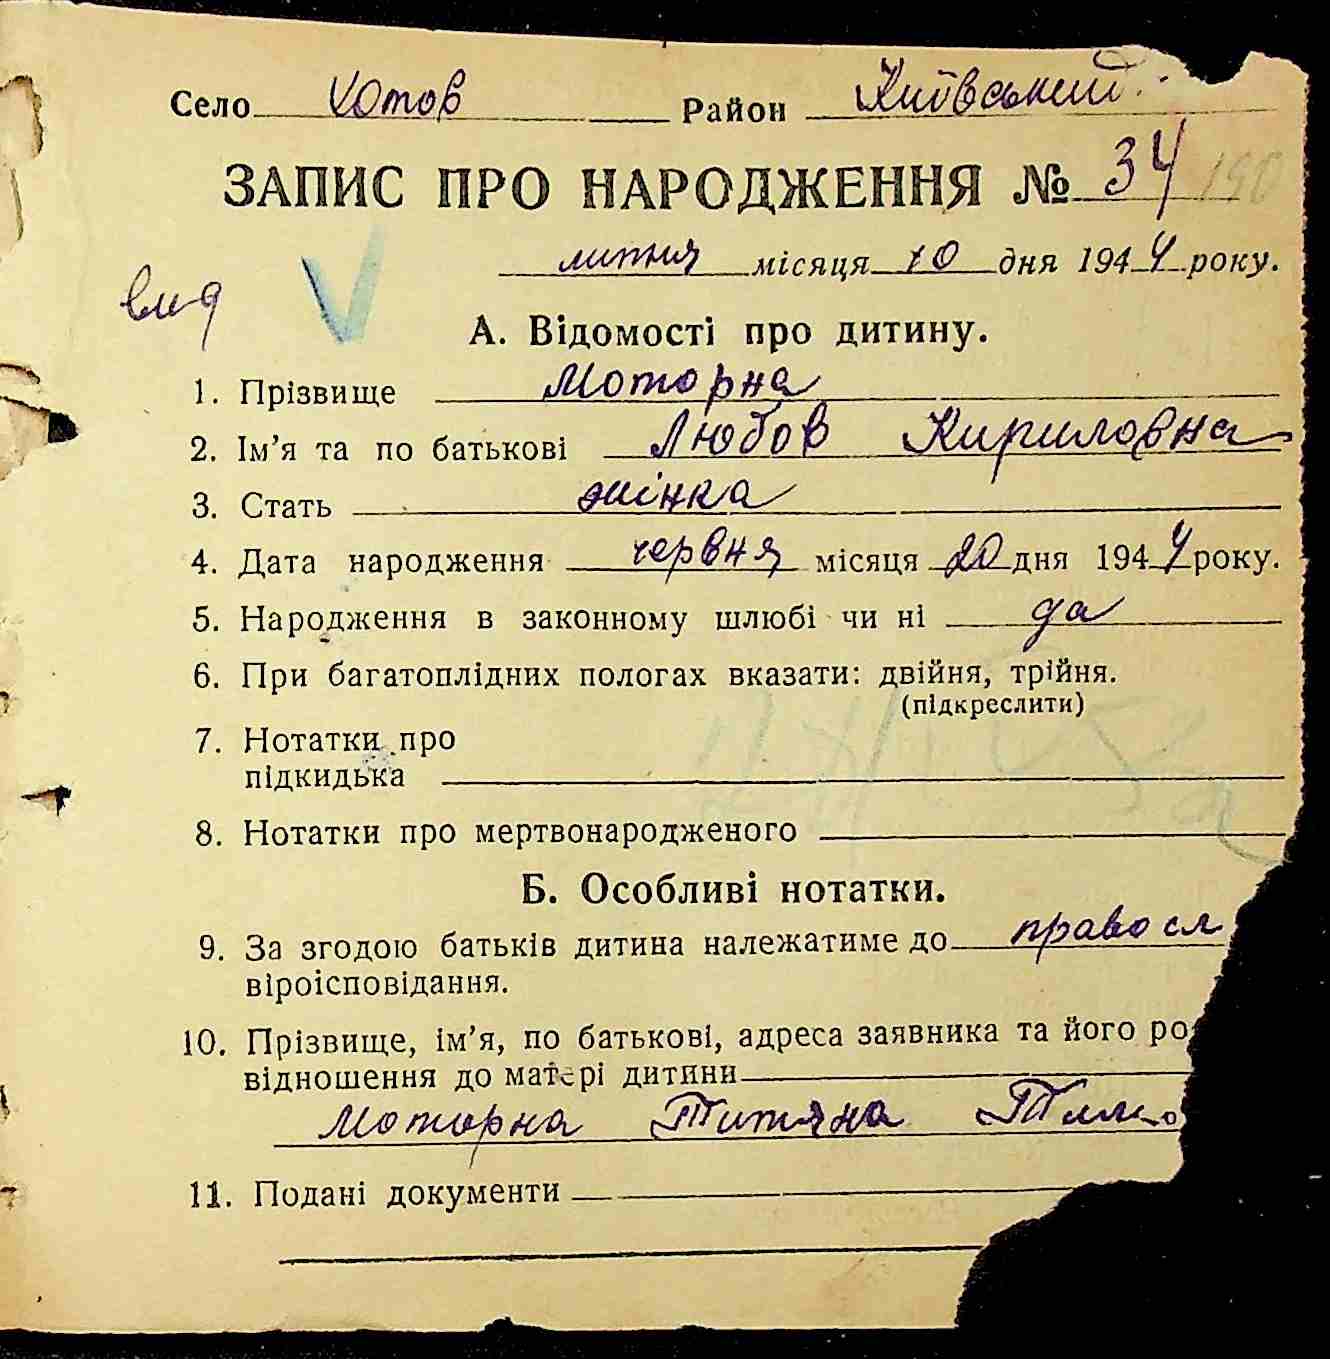 Село Хотов Район Київський
ЗАПИС ПРО НАРОДЖЕННЯ № 34 190
липня місяця 10 дня 1944 року.
вид
А. Відомості про дитину.
1. Прізвище Моторна
2. Ім'я та по батькові Любов Кириловна
3. Стать жінка
4. Дата народження червня місяця 20 дня 1944 року.
5. Народження в законному шлюбі чи ні да
6. При багатоплідних пологах вказати: двійня, трійня.
(підкреслити)
7. Нотатки про
підкидька
8. Нотатки про мертвонародженого
Б. Особливі нотатки.
9. За згодою батьків дитина належатиме до правосл
віроісповідання.
10. Прізвище, ім'я, по батькові, адреса заявника та його ро
відношення до матері дитини
Моторна Титяна Тимо
11. Подані документи